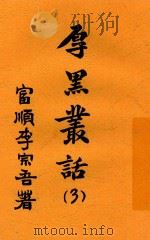 厚黑叢話
(3)
富順李宗吾著
mtoou.info